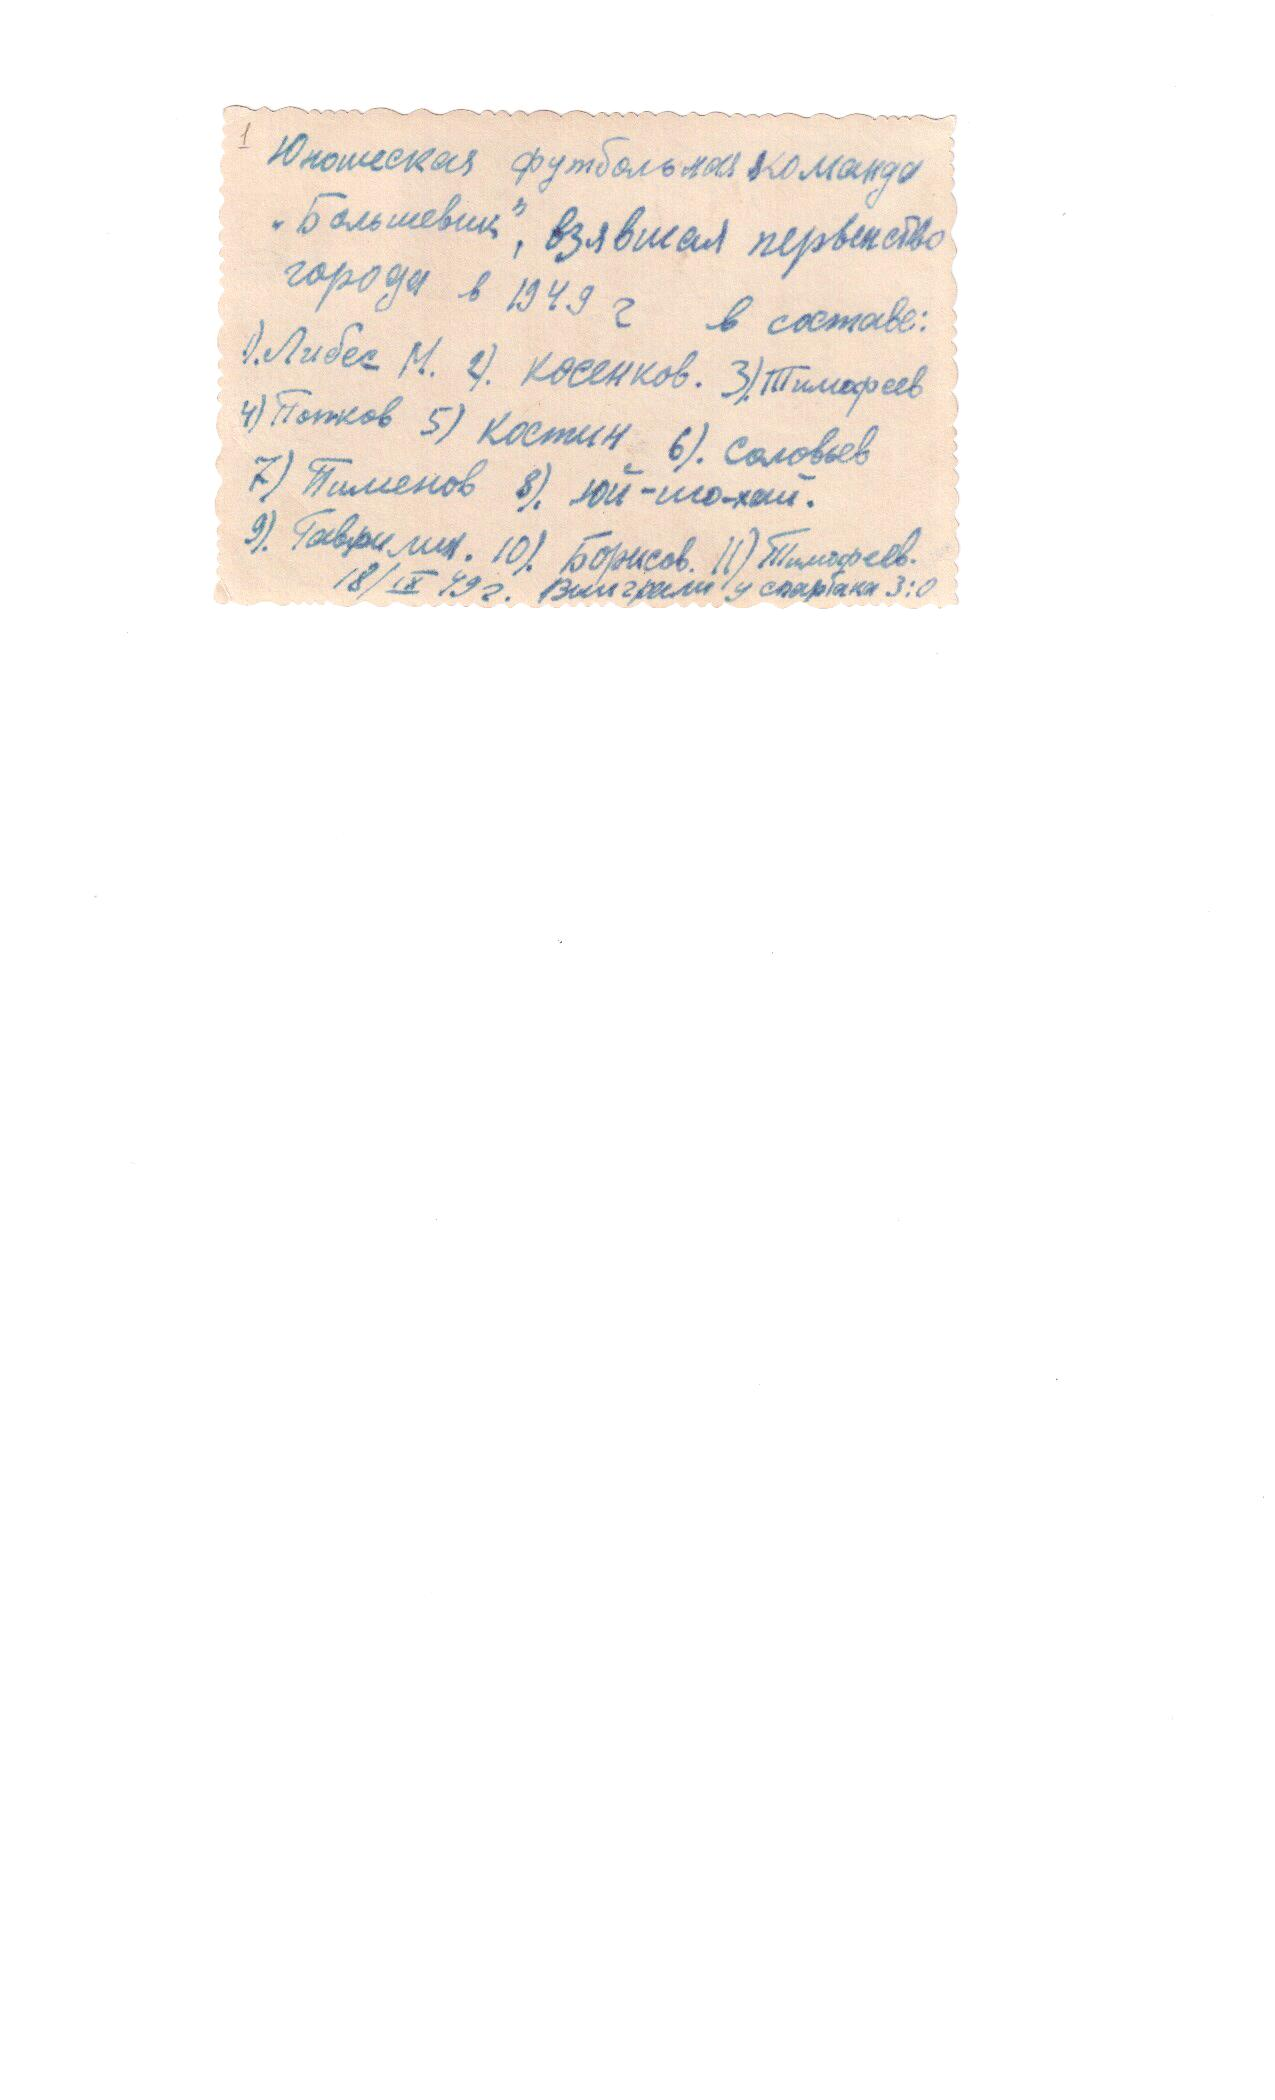 1
Юношеская футбольная команда
„Большевик", взявшая первенство
города в 1949 г в составе:
1). Либес М. 2). Косенков. 3). Тимофеев
4) Попков 5) Костин 6). Соловьев
7) Пименов 8). Юй-шо-хай.
9). Гаврилин. 10). Борисов. 11) Тимофеев.
18/IX 49 г. Выиграли у спартака 3:0